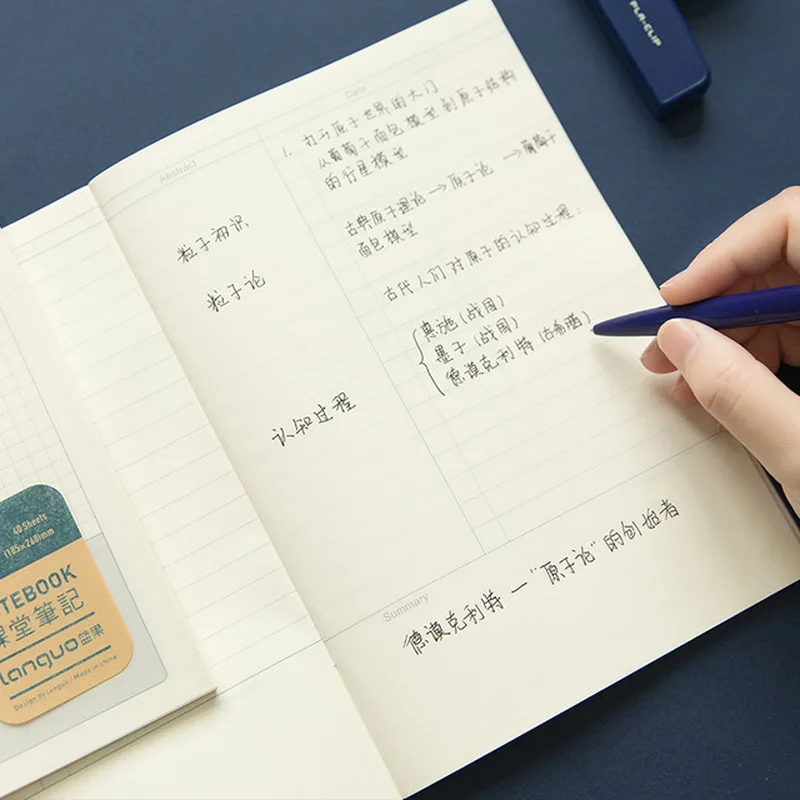 PLA-CLIP
Date
1. 打开原子世界的大门
从葡萄干面包模型到原子结构
的行星模型
古典原子理论→原子论 →葡萄干
面包模型
古代人们对原子的认知过程:
惠施(战国)
墨子(战国)
德谟克利特(古希腊)
Abstract
粒子初识
粒子论
认知过程
Summary
德谟克利特一“原子论”的创始者
40 Sheets
(185×260)mm
NOTEBOOK
課堂筆記
languo 蓝果
Design by languo / Made in china